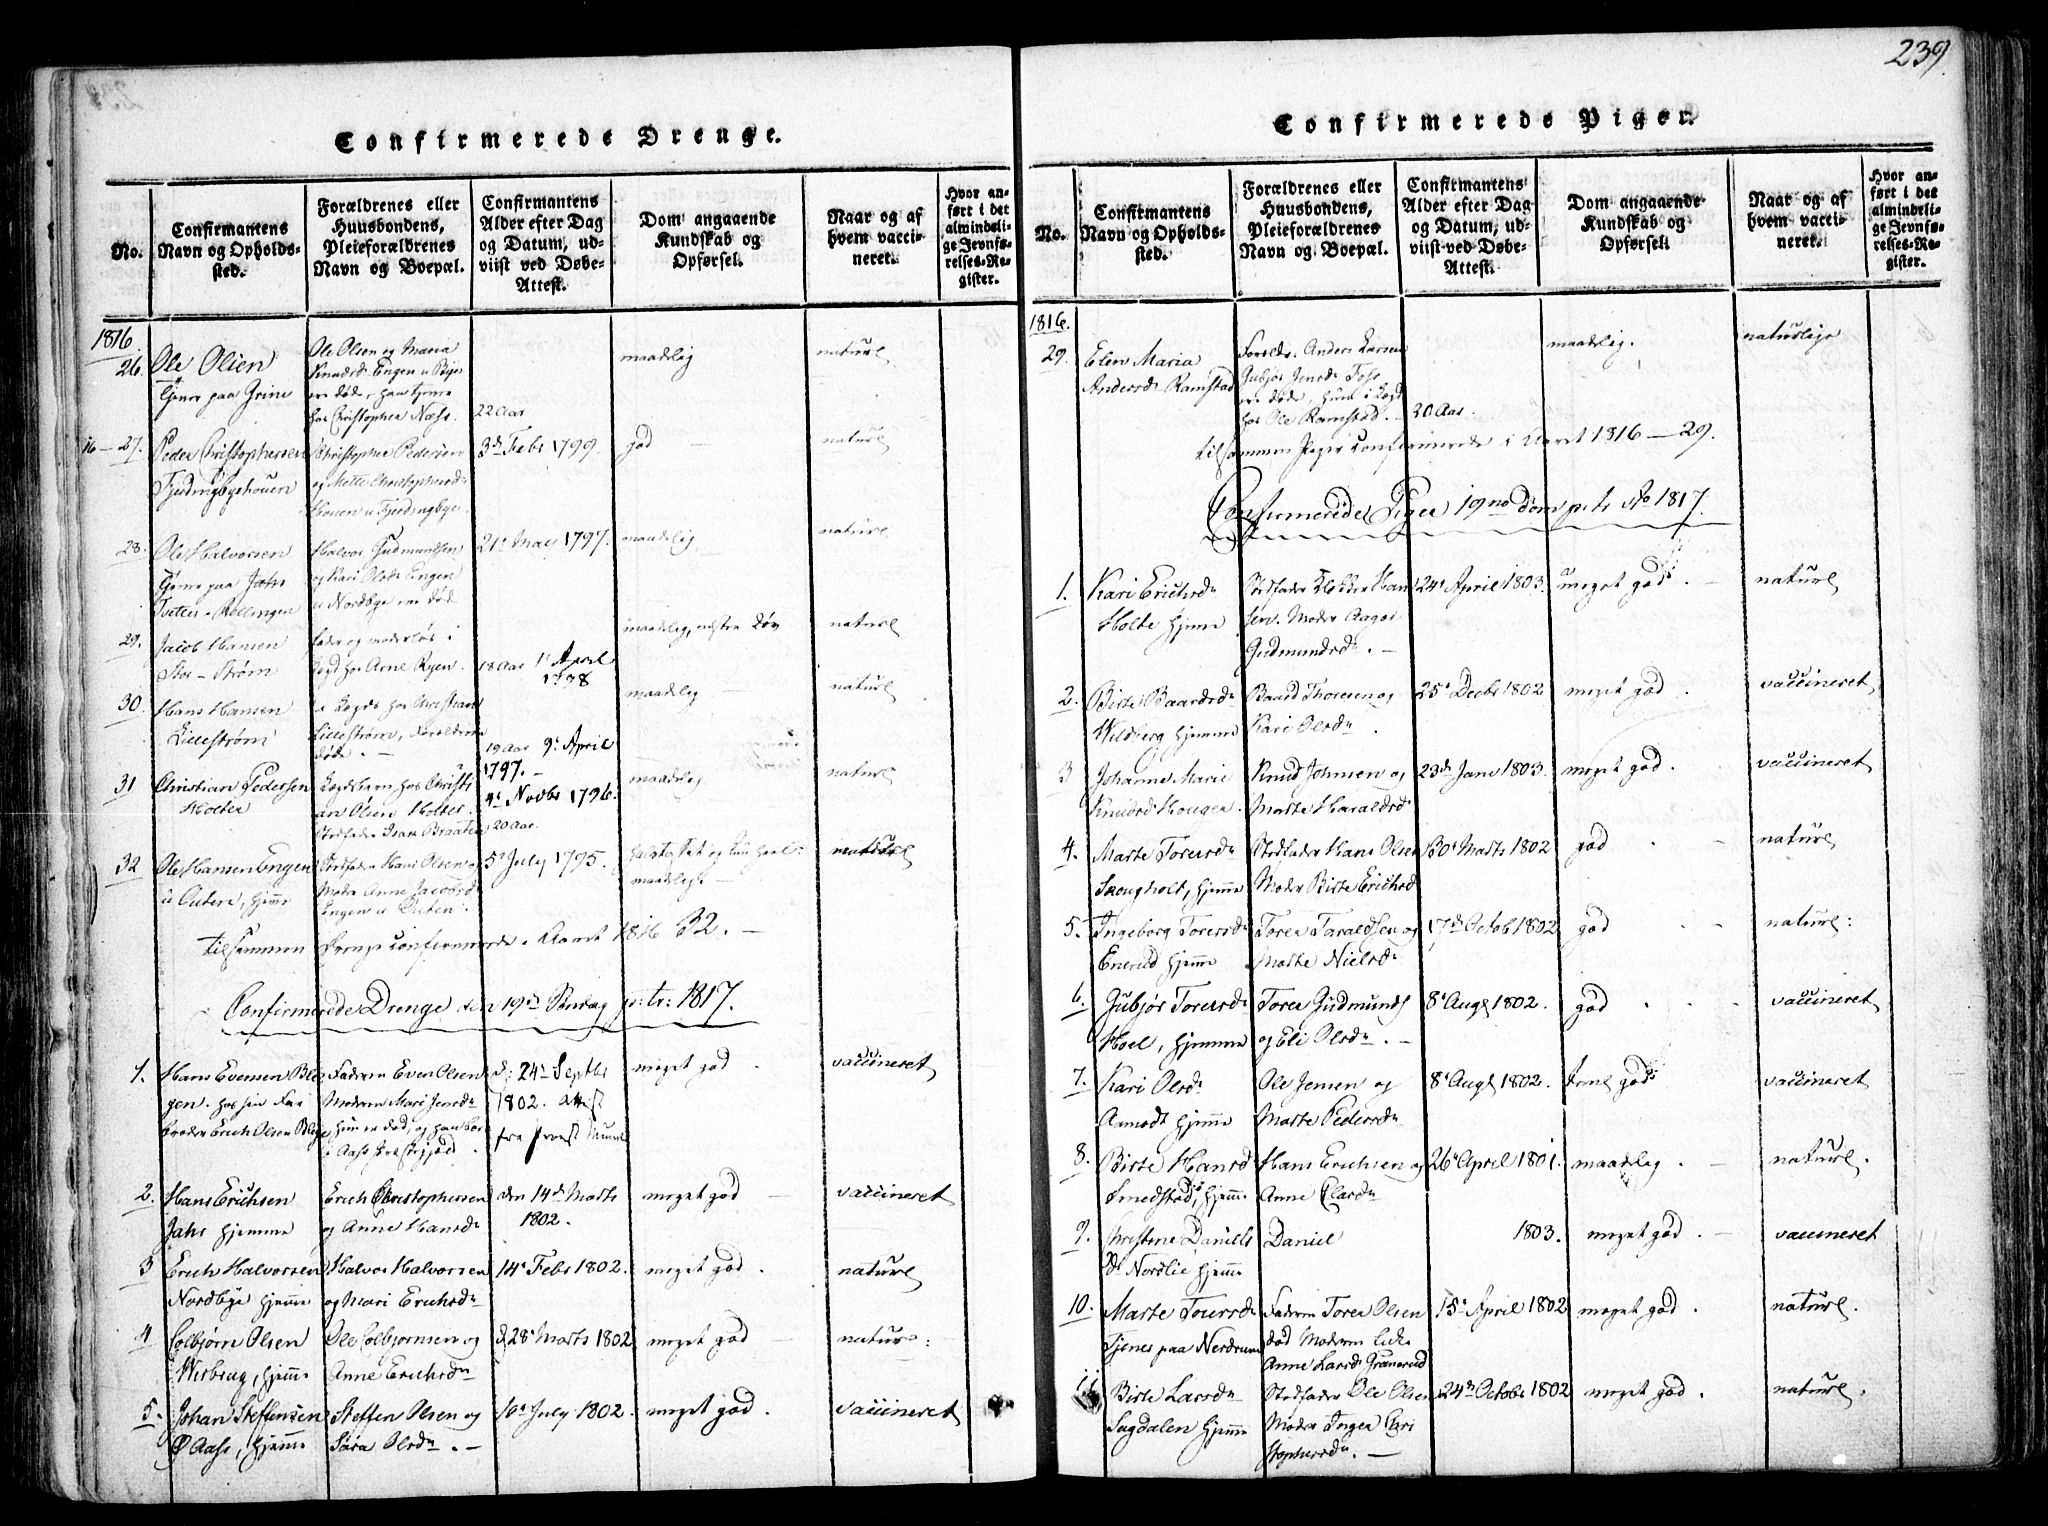 239.
Confirmerede Drenge.
No.
Confirmantens
Navn og Opholds-
sted.
Forældrenes eller
Huusbondens,
Pleieforældrenes
Navn og Boepæl.
Confirmantens
Alder efter Dag
og Datum, ud-
viist ved Døbe-
Attest.
Dom angaaende
Kundskab og
Opførsel.
Naar og af
hvem vacci-
neret.
Hvor an-
ført i det
almindeli-
ge Jevnfø-
relses-Re-
gister.
1816.
26.
Ole Olsen
Tjener paa Grine
Ole Olsen og Maria
Knudsd. Engen u Bye
ere døde, han tjener
hos Christopher Næss.
22 Aar
maadelig
naturl
16 — 27.
Peder Christophersen
Tjerdingbyehouen
Christopher Pedersen
og Mette Christophersd.
Houen u Tjerdingbye.
3d Febr 1799.
god
naturl
28.
Ole Halvorsen
Tjener paa Jahr
Halvor Gudmundsen
og Kari Olsd. Engen
u Nordbye ere død
21. Mai 1797.
maadelig
naturl
29.
Jacob Hansen
Stor-Strøm
fader og moderløs i
Legd hos Arne Ryen.
18 Aar 1. April
1798
maadelig, næsten Døv
naturl
30.
Hans Hansen
Lillestrøm
u Legds hos Christian
Lillestrøm, Forældrene
døde. —
19 Aar 9. April
1797. —
maadelig
naturl
31
Christian Pedersen
Holter
Legdsbarn hos Christi
an Olsen Holter.
Stedfader Isak Braaten
9. Novbr 1796.
20 Aar.
maadelig
naturl
32
Ole Hansen Engen
u Outere, hjemme
Stedfader Hans Olsen og
Moder Anne Jacobsd.
Engen u Outen.
5. July 1795.
maadelig. —
naturl
tilsammen Drenge confirmerede i Aaret 1816 32. —
Confirmerede Drenge den 19de Søndag p: tr: 1817.
1.
Hans Evensen Ble
gen. hos sin Far
broder Erich Olsen Blege
Faderen Even Olsen
Moderen Mari Jensd.
hun er død, og han boer
i Aas Præstegjeld.
d: 24. Septbr
1802. attest
fra Provst
meget god
vaccineret
2.
Hans Erichsen
Jahr hjemme
Erich Christophersen
og Anne Hansd.
den 14d Marts
1802.
meget god
vaccineret
3
Erich Halvorsen
Nordbye hjemme
Halvor Halvorsen
og Mari Erichsd.
14. Febr 1802.
meget god.
naturl
4
Colbjørn Olsen
Wisberg, hjemme
Ole Colbjørnsen og
Anne Erichsd.
d 28. Marts 1802
meget god
natur:
5.
Johan Steffensen
Ø Aas, hjemme
Steffen Olsen og
Sara Olsd. —
10. July 1802.
meget god.
vaccineret
Confirmerede Piger.
No.
Confirmantens
Navn og Opholds-
sted.
Forældrenes eller
Huusbondens,
Pleieforældrenes
Navn og Boepæl.
Confirmantens
Alder efter Dag
og Datum, ud-
viist ved Døbe-
Attest.
Dom angaaende
Kundskab og
Opførsel.
Naar og af
hvem vacci-
neret.
Hvor an-
ført i det
almindeli-
ge Jevnfø-
relses-Re-
gister.
1816.
29.
Elen Maria
Andersd. Ramstad
Foreldr. Anders Larsen
Gubjør Jensd. Toss
ere døde, hun i Legd
hos Ole Ramstad. —
20 Aar.
maadelig.
naturlige
tilsammen Piger confirmerede i Aaret 1816 — 29.
Confirmerede Piger 19no Dom p. tr Ao 1817.
1.
Kari Erichsd.
Holte hjemme
Stedfader Peder Han
sen. Moder Aagot
Gudmundsd. —
24. April 1803.
meget god. —
naturl
2.
Birte Baardsd.
Wilberg hjemme
Baard Thoresen og
Kari Olsd.
25. Decbr 1802
meget god.
vaccineret,
3
Johanne Marie
Knudsd Hougen.
Knud Johnsen og
Marte Haraldsd.
23d Janr 1803.
meget god.
vaccineret
4.
Marte Toresd.
Skougholt, hjemme
Stedfader Hans Olsen
Moder Birte Erichsd
30. Marts 1802
god
naturl
5.
Ingeborg Toresd.
Enerud hjemme
Tore Taraldsen og
Marte Nielsd.
17d Octob 1802
god
naturl:
6.
Gubjør Toresd.
Hoel, hjemme
Tore Gudmunds
og Eli Olsd. —
8. Augs 1802.
god
vaccineret
7.
Kari Olsd.
Aamodt hjemme
Ole Jensen og
Marte Pedersd.
8. Augs 1802.
god
vaccineret
8.
Birte Hansd
Smedstad, hjemme
Hans Erichsen og
Anne Clausd.
26. April 1801.
maadelig. —
naturl.
9.
Christine Daniels
d. Nordlie hjemme
Daniel
1803.
meget god. —
vaccineret
10.
Marte Toresd.
Tjenes paa Nerdrum
Faderen Tore Olsen
død Moderen
Anne Larsd. Granerud
15. April 1802
meget god.
naturl.
11.
Birte Larsd.
Sagdalen hjemme
Stedfader Ole Olsen
Moder Inger Chri
stophersd. —
24d October 1802
meget god.
naturl.